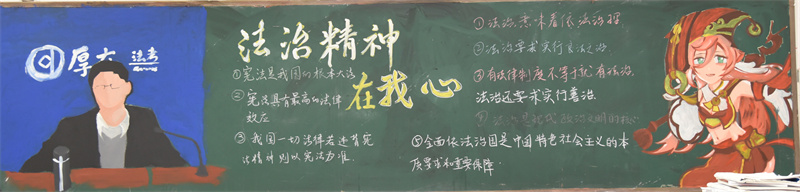 厚大 法考
法治精神
在我心
①宪法是我国的根本大法
②宪法具有最高的法律
效应
③我国一切法律若违背宪
法精神则以宪法为准.
①法治意味着依法治理
②法治要求实行良法之治
③有法律制度不等于就有法治.
法治还要求实行善治.
⑤全面依法治国是中国特色社会主义的本
质要求和重要保障.